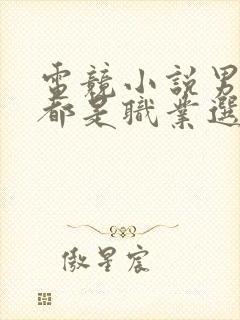 電競小說男
都是職業選
傲星宸